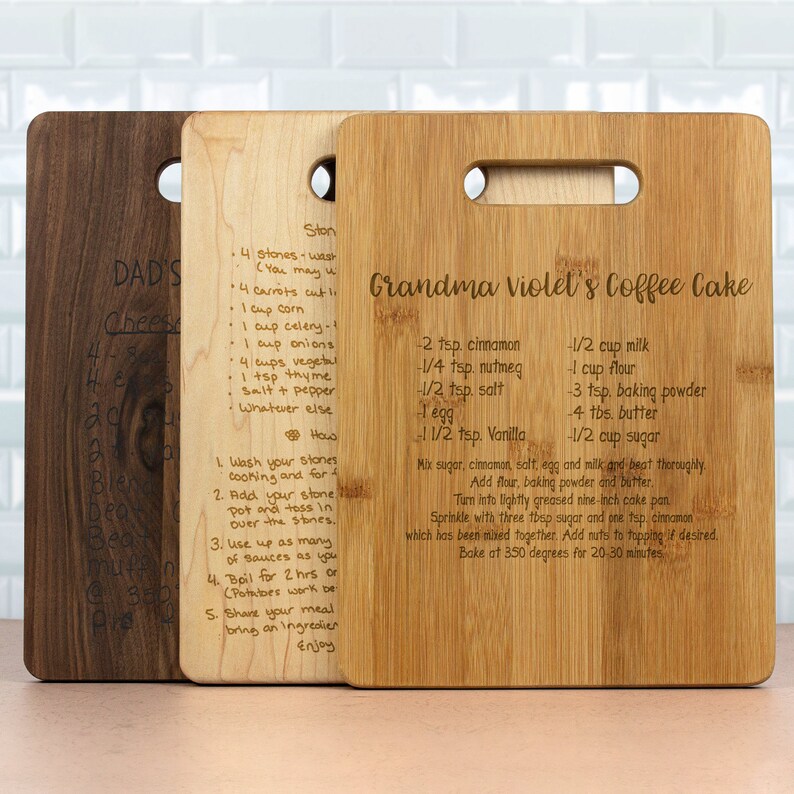 DAD'S
Cheese
4
4
2 C
Blen
Beat
Beat
muffin
@ 350
Pre
Ston
• 4 stones - wash
(You may w
• 4 carrots cut i
• 1 cup corn
• 1 cup celery -
• 1 cup onions
• 4 cups vegetab
• 1 tsp thyme
salt + pepper
• Whatever else
How
1. Wash your stones
cooking and for f
2. Add your stone
pot and toss in
over the stones.
3. Use up as many
of sauces as you
4. Boil for 2 hrs or
(Potatoes work be
5. Share your meal
bring an ingredien
Enjoy
Grandma Violet's Coffee Cake
-2 tsp. cinnamon
-1/4 tsp. nutmeg
-1/2 tsp. salt
-1 egg
-1 1/2 tsp. Vanilla
-1/2 cup milk
-1 cup flour
-3 tsp. baking powder
-4 tbs. butter
-1/2 cup sugar
Mix sugar, cinnamon, salt, egg and milk and beat thoroughly.
Add flour, baking powder and butter.
Turn into lightly greased nine-inch cake pan.
Sprinkle with three tbsp sugar and one tsp. cinnamon
which has been mixed together. Add nuts to topping if desired.
Bake at 350 degrees for 20-30 minutes.